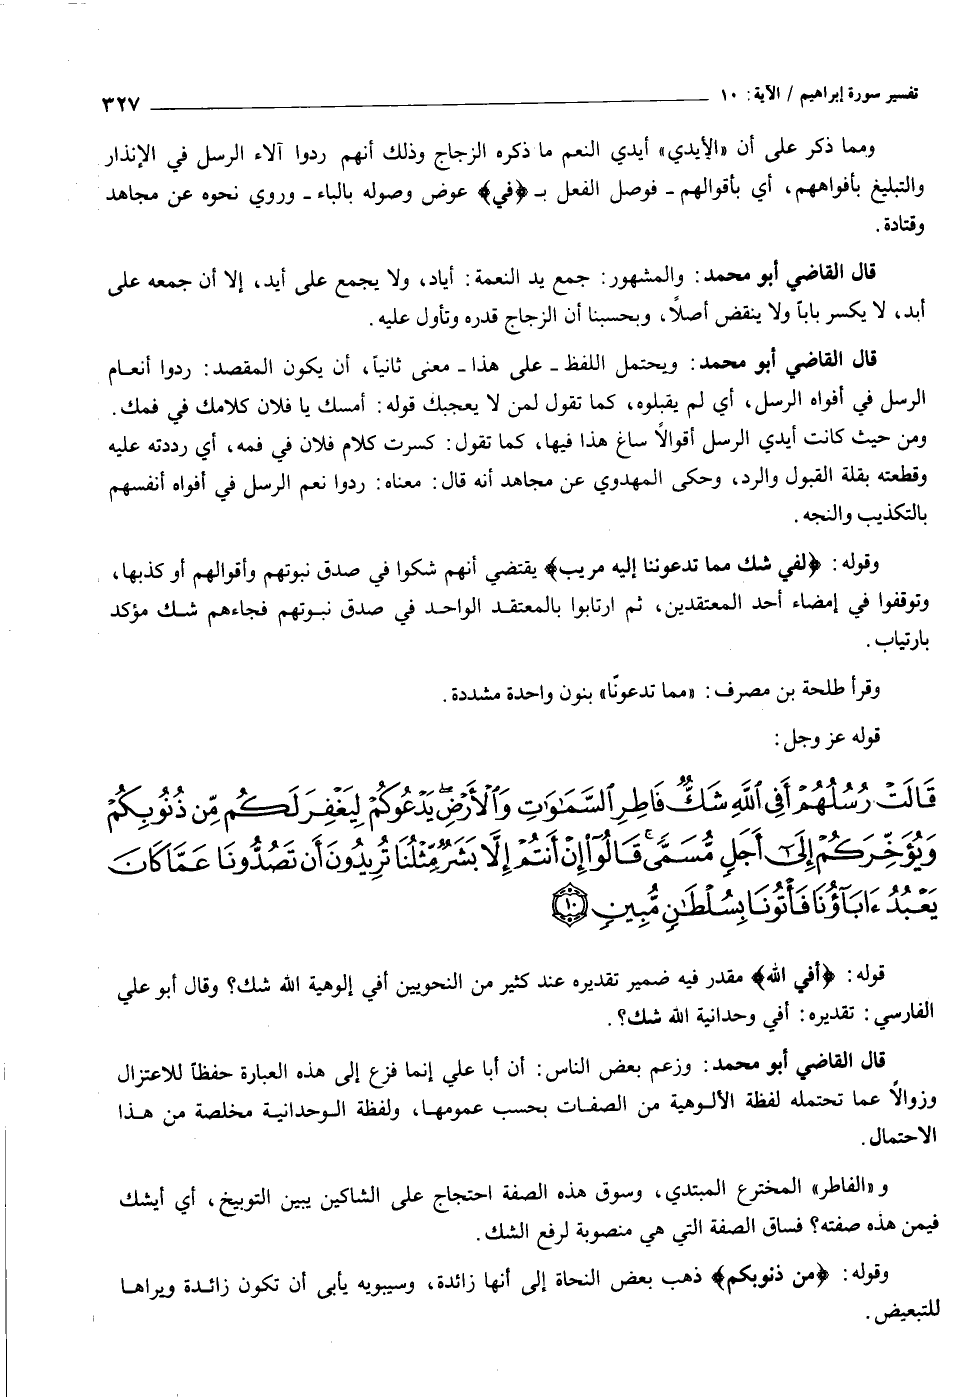 تفسير سورة إبراهيم / الآية: ١٠ ــــــ ٣٢٧
ومما ذكر على أن «الأيدي» أيدي النعم ما ذكره الزجاج وذلك أنهم ردوا آلاء الرسل في الإنذار
والتبليغ بأفواههم، أي بأقوالهم ـ فوصل الفعل بـ ﴿في﴾ عوض وصوله بالباء ـ وروي نحوه عن مجاهد
وقتادة.
قال القاضي أبو محمد: والمشهور: جمع يد النعمة: أياد، ولا يجمع على أيد، إلا أن جمعه على
أيد، لا يكسر باباً ولا ينقض أصلاً، وبحسبنا أن الزجاج قدره وتأول عليه.
قال القاضي أبو محمد: ويحتمل اللفظ ـ على هذا ـ معنى ثانياً، أن يكون المقصد: ردوا أنعام
الرسل في أفواه الرسل، أي لم يقبلوه، كما تقول لمن لا يعجبك قوله: أمسك يا فلان كلامك في فمك.
ومن حيث كانت أيدي الرسل أقوالاً ساغ هذا فيها، كما تقول: كسرت كلام فلان في فمه، أي رددته عليه
وقطعته بقلة القبول والرد، وحكى المهدوي عن مجاهد أنه قال: معناه: ردوا نعم الرسل في أفواه أنفسهم
بالتكذيب والنجه.
وقوله: ﴿لفي شك مما تدعوننا إليه مريب﴾ يقتضي أنهم شكوا في صدق نبوتهم وأقوالهم أو كذبها،
وتوقفوا في إمضاء أحد المعتقدين، ثم ارتابوا بالمعتقد الواحد في صدق نبوتهم فجاءهم شك مؤكد
بارتياب.
وقرأ طلحة بن مصرف: «مما تدعونّا» بنون واحدة مشددة.
قوله عز وجل:
قَالَتْ رُسُلُهُمْ أَفِي ٱللَّهِ شَكٌّ فَاطِرِ ٱلسَّمَٰوَٰتِ وَٱلْأَرْضِ يَدْعُوكُمْ لِيَغْفِرَ لَكُم مِّن ذُنُوبِكُمْ
وَيُؤَخِّرَكُمْ إِلَىٰٓ أَجَلٍ مُّسَمًّى قَالُوٓا۟ إِنْ أَنتُمْ إِلَّا بَشَرٌ مِّثْلُنَا تُرِيدُونَ أَن تَصُدُّونَا عَمَّا كَانَ
يَعْبُدُ ءَابَآؤُنَا فَأْتُونَا بِسُلْطَٰنٍ مُّبِينٍ ١٠
قوله: ﴿أفي الله﴾ مقدر فيه ضمير تقديره عند كثير من النحويين أفي إلوهية الله شك؟ وقال أبو علي
الفارسي: تقديره: أفي وحدانية الله شك؟.
قال القاضي أبو محمد: وزعم بعض الناس: أن أبا علي إنما فزع إلى هذه العبارة حفظاً للاعتزال
وزوالاً عما تحتمله لفظة الألوهية من الصفات بحسب عمومها، ولفظة الوحدانية مخلصة من هذا
الاحتمال.
و «الفاطر» المخترع المبتدي، وسوق هذه الصفة احتجاج على الشاكين يبين التوبيخ، أي أيشك
فيمن هذه صفته؟ فساق الصفة التي هي منصوبة لرفع الشك.
وقوله: ﴿من ذنوبكم﴾ ذهب بعض النحاة إلى أنها زائدة، وسيبويه يأبى أن تكون زائدة ويراها
للتبعيض.